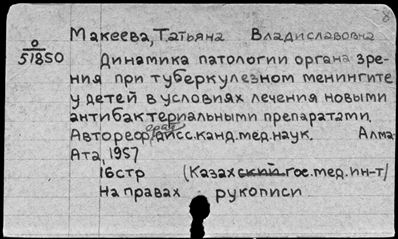 8
Макеева, Татьяна Владиславовна
0
51850
Динамика патологии органа зре-
ния при туберкулезном менингите
у детей в условиях лечения новыми
антибактериальными препаратами.
Автореферат дисс. канд. мед. наук. Алма-
Ата, 1957
16стр (Казахский гос. мед. ин-т/
На правах рукописи